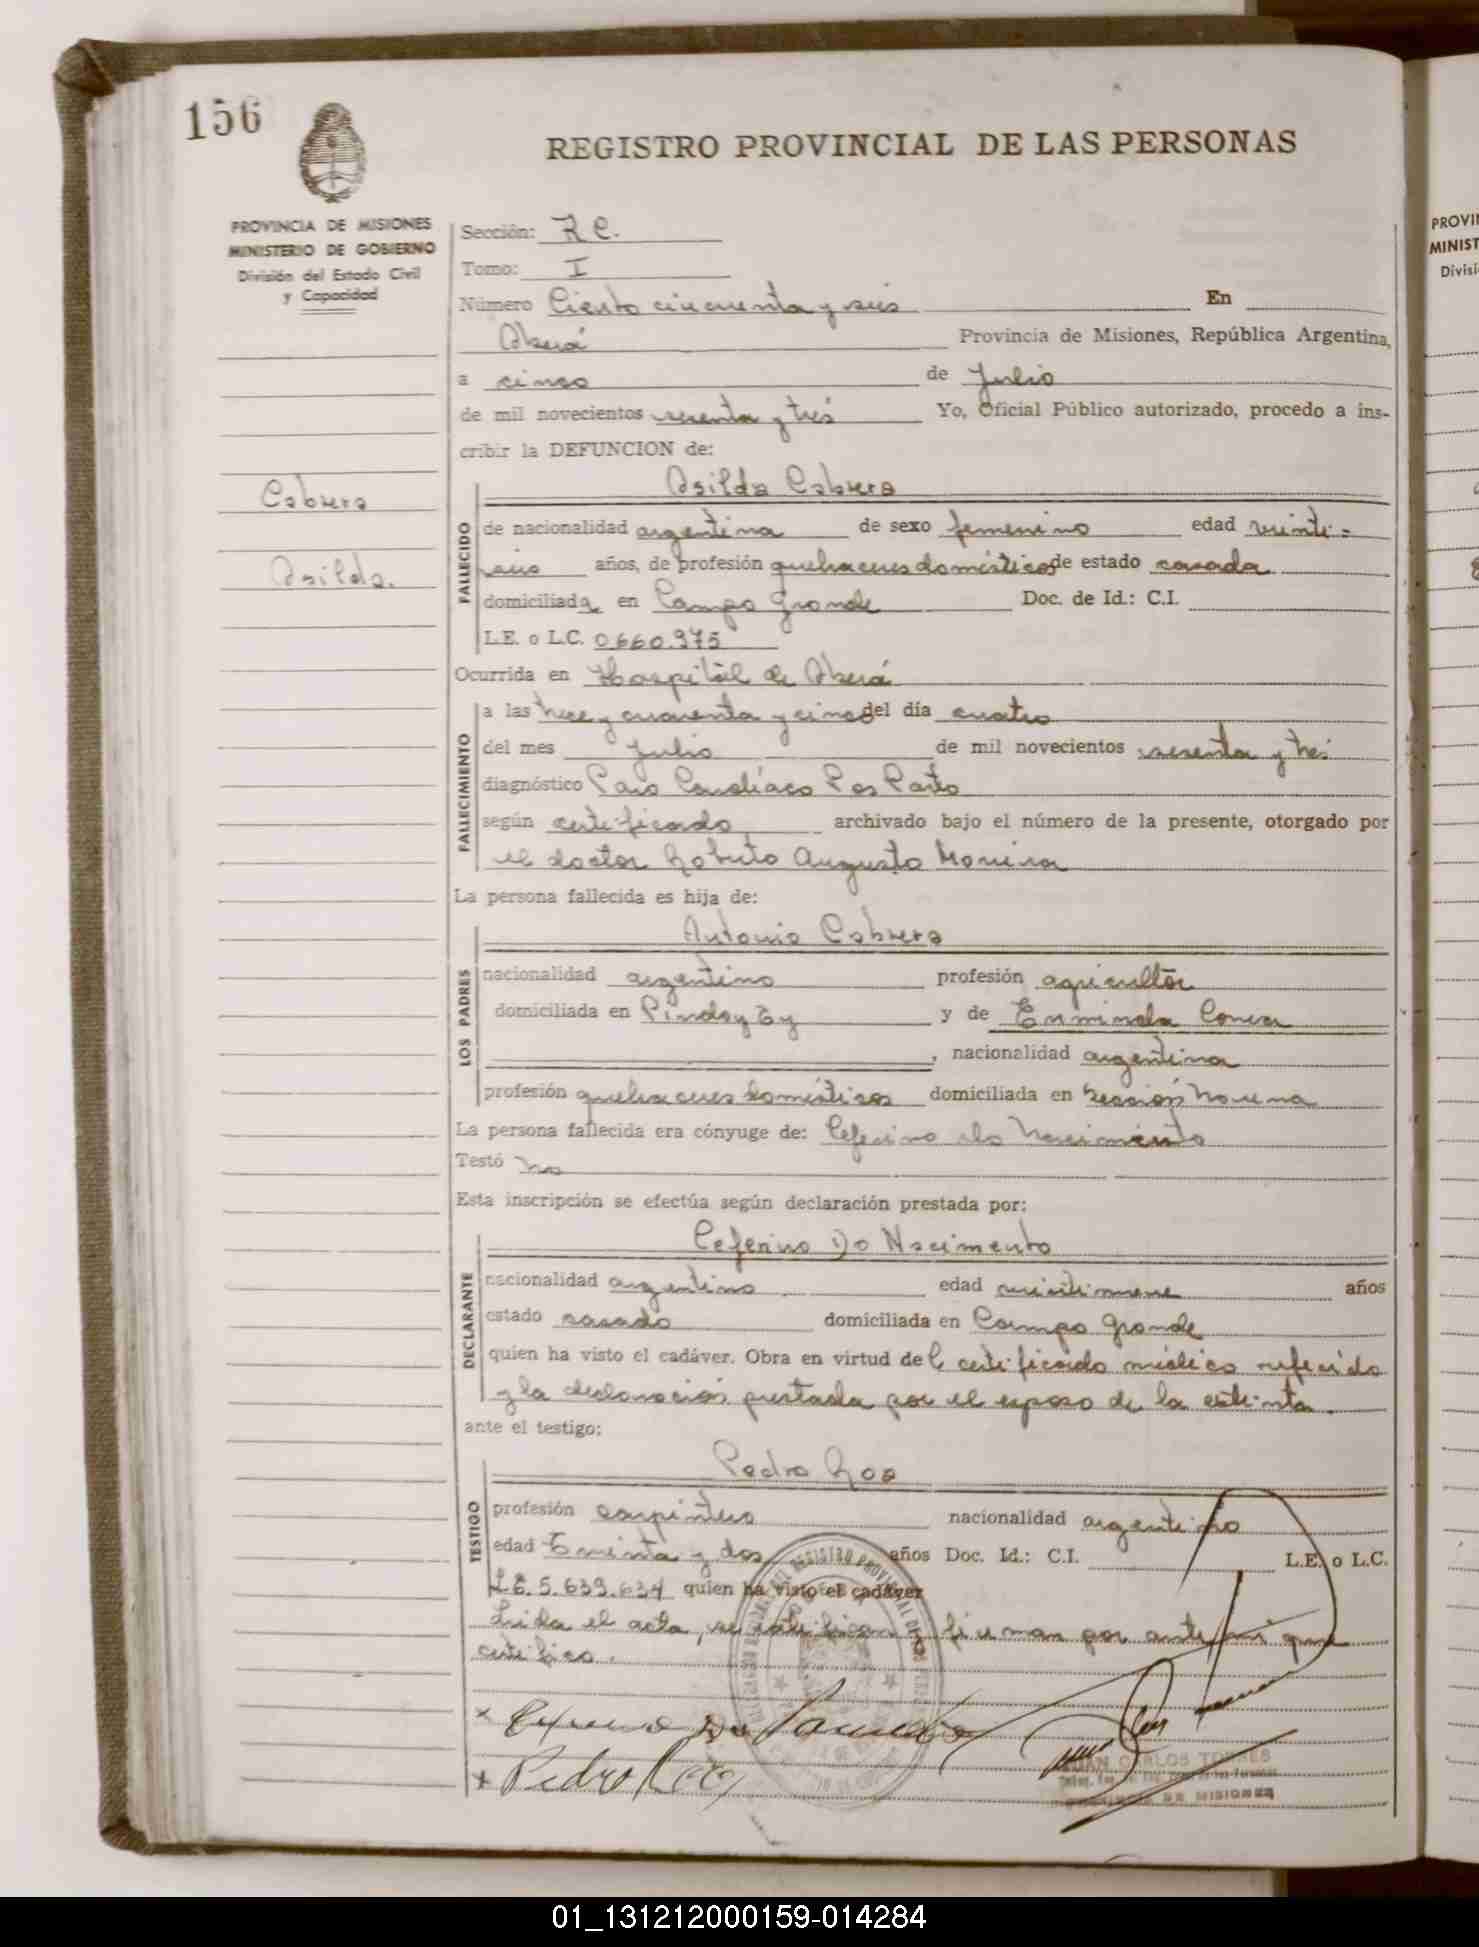 156
REGISTRO PROVINCIAL DE LAS PERSONAS
PROVINCIA DE MISIONES
MINISTERIO DE GOBIERNO
División del Estado Civil
y Capacidad
Sección: R C.
Tomo: I
Número Ciento cincuenta y seis En
Oberá Provincia de Misiones, República Argentina,
a cinco de Julio
de mil novecientos sesenta y tres Yo, Oficial Público autorizado, procedo a ins-
cribir la DEFUNCION de:
Cabrera
Osilda.
Osilda Cabrera
FALLECIDO
de nacionalidad argentina de sexo femenino edad veinti-
seis años, de profesión quehaceres domésticos de estado casada
domiciliada en Campo Grande Doc. de Id.: C.I.
L.E. o L.C. 0.660.975
Ocurrida en Hospital de Oberá
FALLECIMIENTO
a las trece y cuarenta y cinco del día cuatro
del mes Julio de mil novecientos sesenta y tres
diagnóstico Paro Cardíaco Pos Parto
según certificado archivado bajo el número de la presente, otorgado por
el doctor Roberto Augusto
La persona fallecida es hija de:
LOS PADRES
Antonio Cabrera
nacionalidad argentino profesión agricultor
domiciliada en Pindayty y de Erminda
, nacionalidad argentina
profesión quehaceres domésticos domiciliada en Sección Novena
La persona fallecida era cónyuge de: Ceferino do Nacimiento
Testó No
Esta inscripción se efectúa según declaración prestada por:
DECLARANTE
Ceferino Do Nacimento
nacionalidad argentino edad veintinueve años
estado casado domiciliada en Campo Grande
quien ha visto el cadáver. Obra en virtud del certificado médico referido
y la declaración prestada por el esposo de la extinta.
ante el testigo:
TESTIGO
Pedro Roa
profesión carpintero nacionalidad argentino
edad Treinta y dos años Doc. Id.: C.I. L.E. o L.C.
L.E. 5.639.634 quien ha visto el cadáver
Leida el acta, se ratifican y firman por ante mi que
certifico.
x Ceferino Do
x Pedro Roa
JUAN CARLOS TORRES
DE MISIONES
PROVI
MINIST
Divisi
01_131212000159-014284